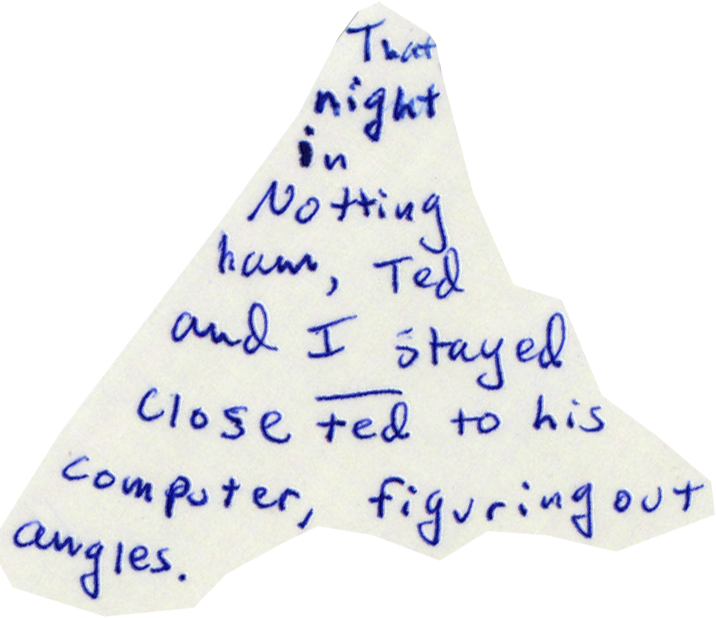 That
night
in
Notting
ham, Ted
and I stayed
close ted to his
computer, figuring out
angles.